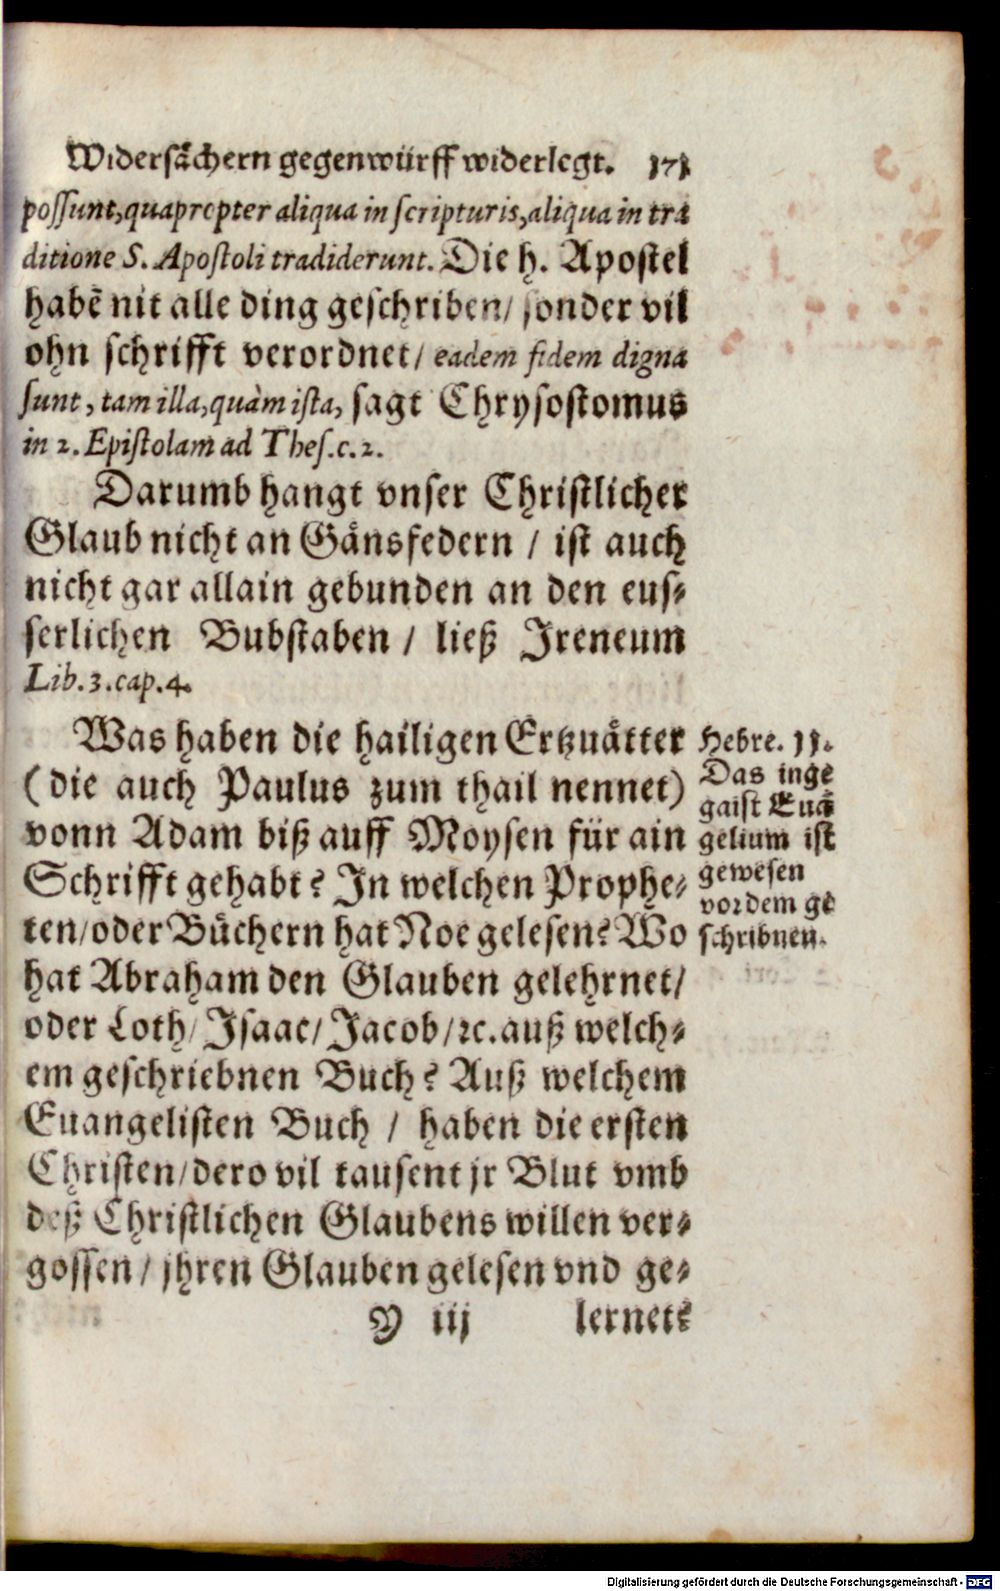 Widersåchern gegenwürff widerlegt. 171
possunt, quapropter aliqua in scripturis, aliqua in tra
ditione S. Apostoli tradiderunt. Die h. Apostel
habē nit alle ding geschriben/ sonder vil
ohn schrifft verordnet/ eadem fidem digna
sunt, tam illa, quàm ista, sagt Chrysostomus
in 2. Epistolam ad Thes. c. 2.
Darumb hangt vnser Christlicher
Glaub nicht an Gånsfedern / ist auch
nicht gar allain gebunden an den eus-
serlichen Bubstaben / ließ Ireneum
Lib. 3. cap. 4.
Was haben die hailigen Ertzuåtter
(die auch Paulus zum thail nennet)
vonn Adam biß auff Moysen für ain
Schrifft gehabt? In welchen Prophe-
ten/ oder Bůchern hat Noe gelesen? Wo
hat Abraham den Glauben gelehrnet/
oder Loth/ Isaac/ Jacob/ ꝛc. auß welch-
em geschriebnen Buch? Auß welchem
Euangelisten Buch / haben die ersten
Christen/ dero vil tausent jr Blut vmb
deß Christlichen Glaubens willen ver-
gossen / jhren Glauben gelesen vnd ge-
Y iij lernet?
Hebre. 11.
Das inge
gaist Euā
gelium ist
gewesen
vor dem ge
schribnen.
Digitalisierung gefördert durch die Deutsche Forschungsgemeinschaft - DFG